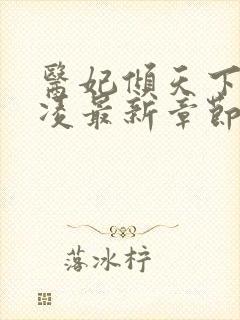 醫妃傾天下
凌最新章節
落冰梓